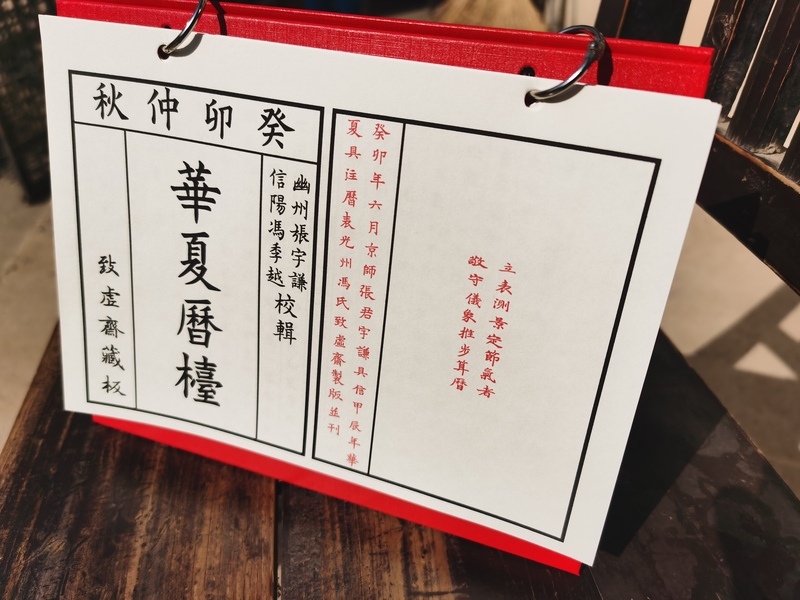 癸卯仲秋
幽州張宇謙
信陽馮季越
校輯
華夏暦檯
致虛齋藏板
立表測景定節氣者
敬守儀象推步筭暦
癸卯年六月京師張君宇謙具信甲辰年華
夏具注暦表光州馮氏致虛齋製版並刊